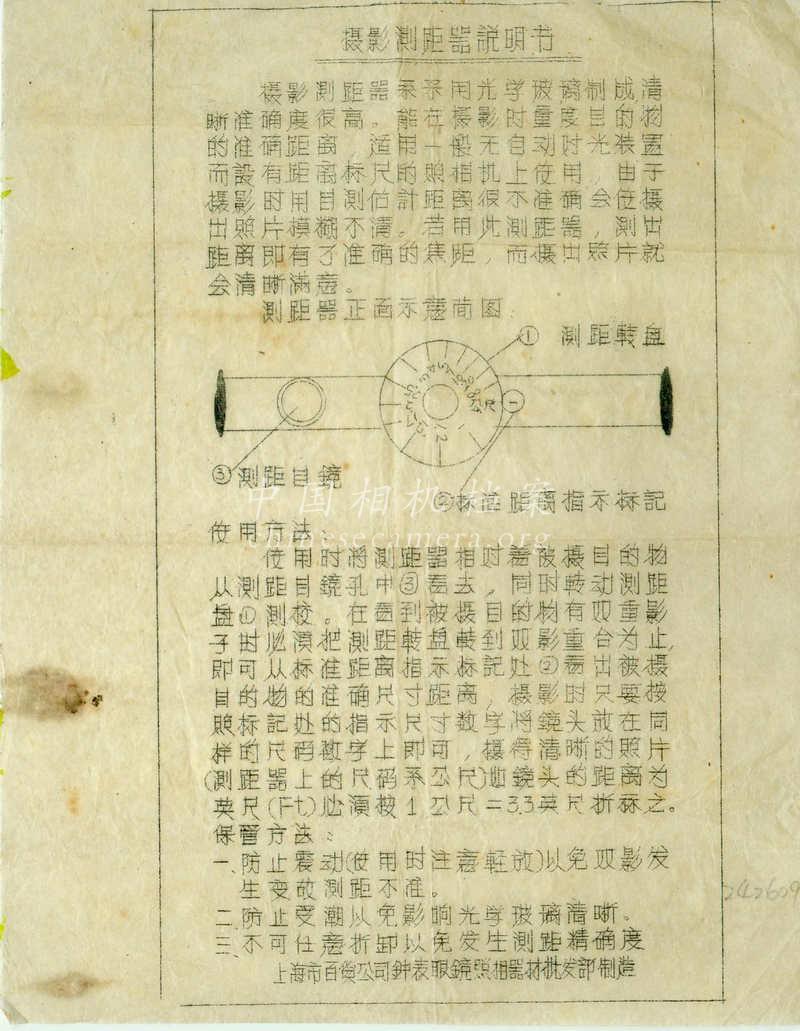 摄影測距器説明书
摄影測距器系采用光学玻璃制成清
晰准确度很高。能在摄影时重度目的物
的准确距离，适用一般无自动对光装置
而設有距离标尺的照相机上使用，由于
摄影时用目測估計距离很不准确会使摄
出照片模糊不清。若用此測距器，測出
距离即有了准确的焦距，而摄出照片就
会清晰满意。
測距器正面示意简图：
① 測距转盘
公尺
③測距目鏡
②标准距离指示标記
中国相机档案
使用方法：
使用时將測距器相对着被摄目的物
从測距目鏡孔中③看去，同时转动測距
盘①測校。在看到被摄目的物有双重影
子时必须把測距转盘转到双影重合为止，
即可从标准距离指示标記处②看出被摄
目的物的准确尺寸距离，摄影时只要按
照标記处的指示尺寸数字將鏡头放在同
样的尺码数字上即可，摄得清晰的照片
(測距器上的尺码系公尺)如鏡头的距离为
英尺(Ft)必须按1公尺=3.3英尺折祘之。
保管方法：
一、防止震动(使用时注意軽放)以免双影发
生变故測距不准。
二、防止受潮以免影响光学玻璃清晰。
三、不可任意折卸以免发生測距精确度
上海市百貨公司鈡表眼鏡照相器材批发部制造